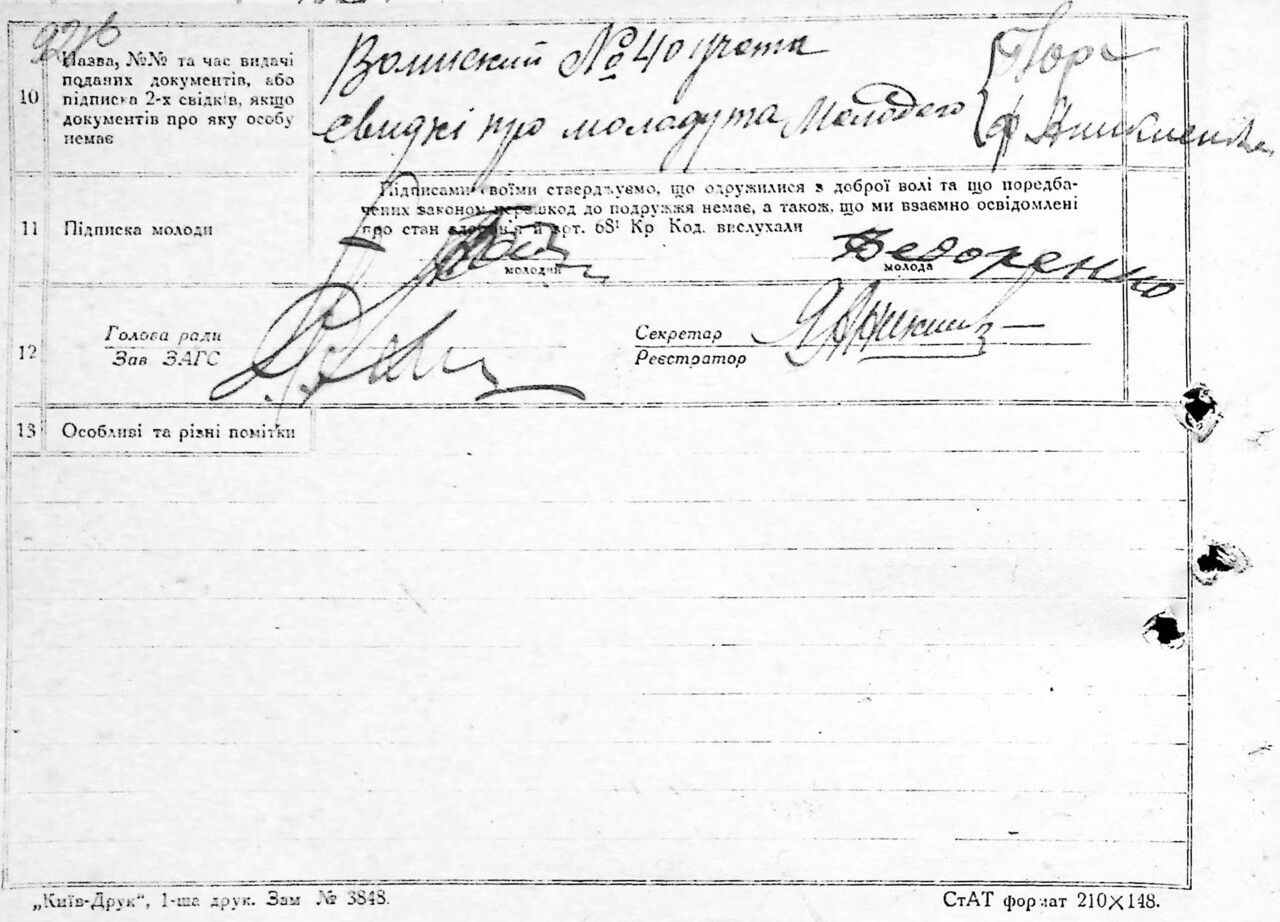 10 Назва, №№ та час видачі поданих документів, або підписка 2-х свідків, якщо документів про яку особу немає
Воинский № 40 учета
свидкі про моладу та Молодого
11 Підписка молоди
Підписами своїми стверджуємо, що одружилися з доброї волі та що передба-
чених законом перешкод до подружжя немає, а також, що ми взаємно освідомлені
про стан здоров'я й арт. 68¹ Кр Код. вислухали
молодий
Федоренко
молода
12 Голова ради
Зав ЗАГС
Секретар
Реєстратор
13 Особливі та різні помітки
„Київ-Друк“, 1-ша друк. Зам № 3848.
СтАТ формат 210×148.